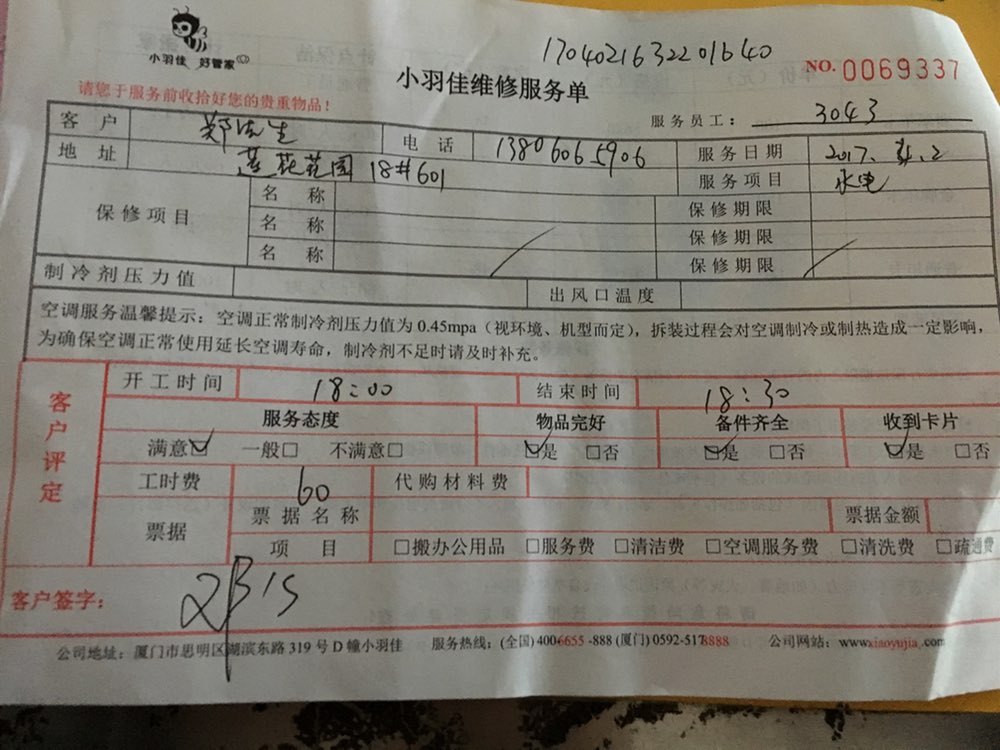 小羽佳 好管家
1704021632201640
NO. 0069337
小羽佳维修服务单
请您于服务前收拾好您的贵重物品！
服务员工： 3043
客户 郑先生 电话 13806065906 服务日期 2017.4.2
地址 莲花花园 18#601 服务项目 水电
保修项目 名称 保修期限
名称 保修期限
名称 保修期限
制冷剂压力值 出风口温度
空调服务温馨提示：空调正常制冷剂压力值为 0.45mpa（视环境、机型而定），拆装过程会对空调制冷或制热造成一定影响，
为确保空调正常使用延长空调寿命，制冷剂不足时请及时补充。
客户评定
开工时间 18:00 结束时间 18:30
服务态度 物品完好 备件齐全 收到卡片
满意☑ 一般□ 不满意□ ☑是 □否 ☑是 □否 ☑是 □否
工时费 60 代购材料费
票据 票据名称 票据金额
项目 □搬办公用品 □服务费 □清洁费 □空调服务费 □清洗费 □疏通费
客户签字：
公司地址：厦门市思明区湖滨东路 319 号 D 幢小羽佳 服务热线：(全国) 4006655 -888 (厦门) 0592-5178888 公司网站：www.xiaoyujia.com